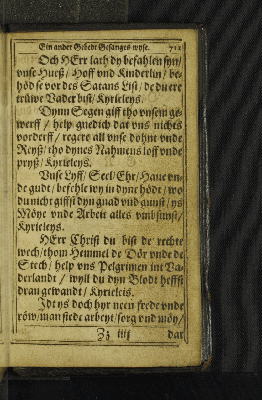 Ein ander Gebedt Gesanges wyse. 711
Och HErr lath dy befahlen syn/
vnse Hueß/ Hoff vnd Kinderlin/ be-
höd se vor des Satans List/ de du ere
trüwe Vader bist/ Kyrieleys.
Dynn Segen giff tho vnsem ge-
werff / help gnedich dat vns nichts
vorderff / regere all vnse döhnt vnde
Reyß/ tho dynes Nahmens loff vnde
pryß/ Kyrieleys.
Vnse Lyff/ Seel/ Ehr/ Haue vn-
de gudt/ befehle wy in dyne höde/ wo
du nicht giffst dyn gnad vnd gunst/ ys
Möye vnde Arbeit alles vmbsunst/
Kyrieleys.
HErr Christ du bist de rechte
wech/ thom Hemmel de Dör vnde de
Stech/ help vns Pelgrimen int Va-
derlandt / wyll du dyn Blodt heffst
dran gewandt/ Kyrieleis.
Idt ys doch hyr neen frede vnde
röw/ man stede arbeyt/ sorg vnd möy/
Zz iiij dar